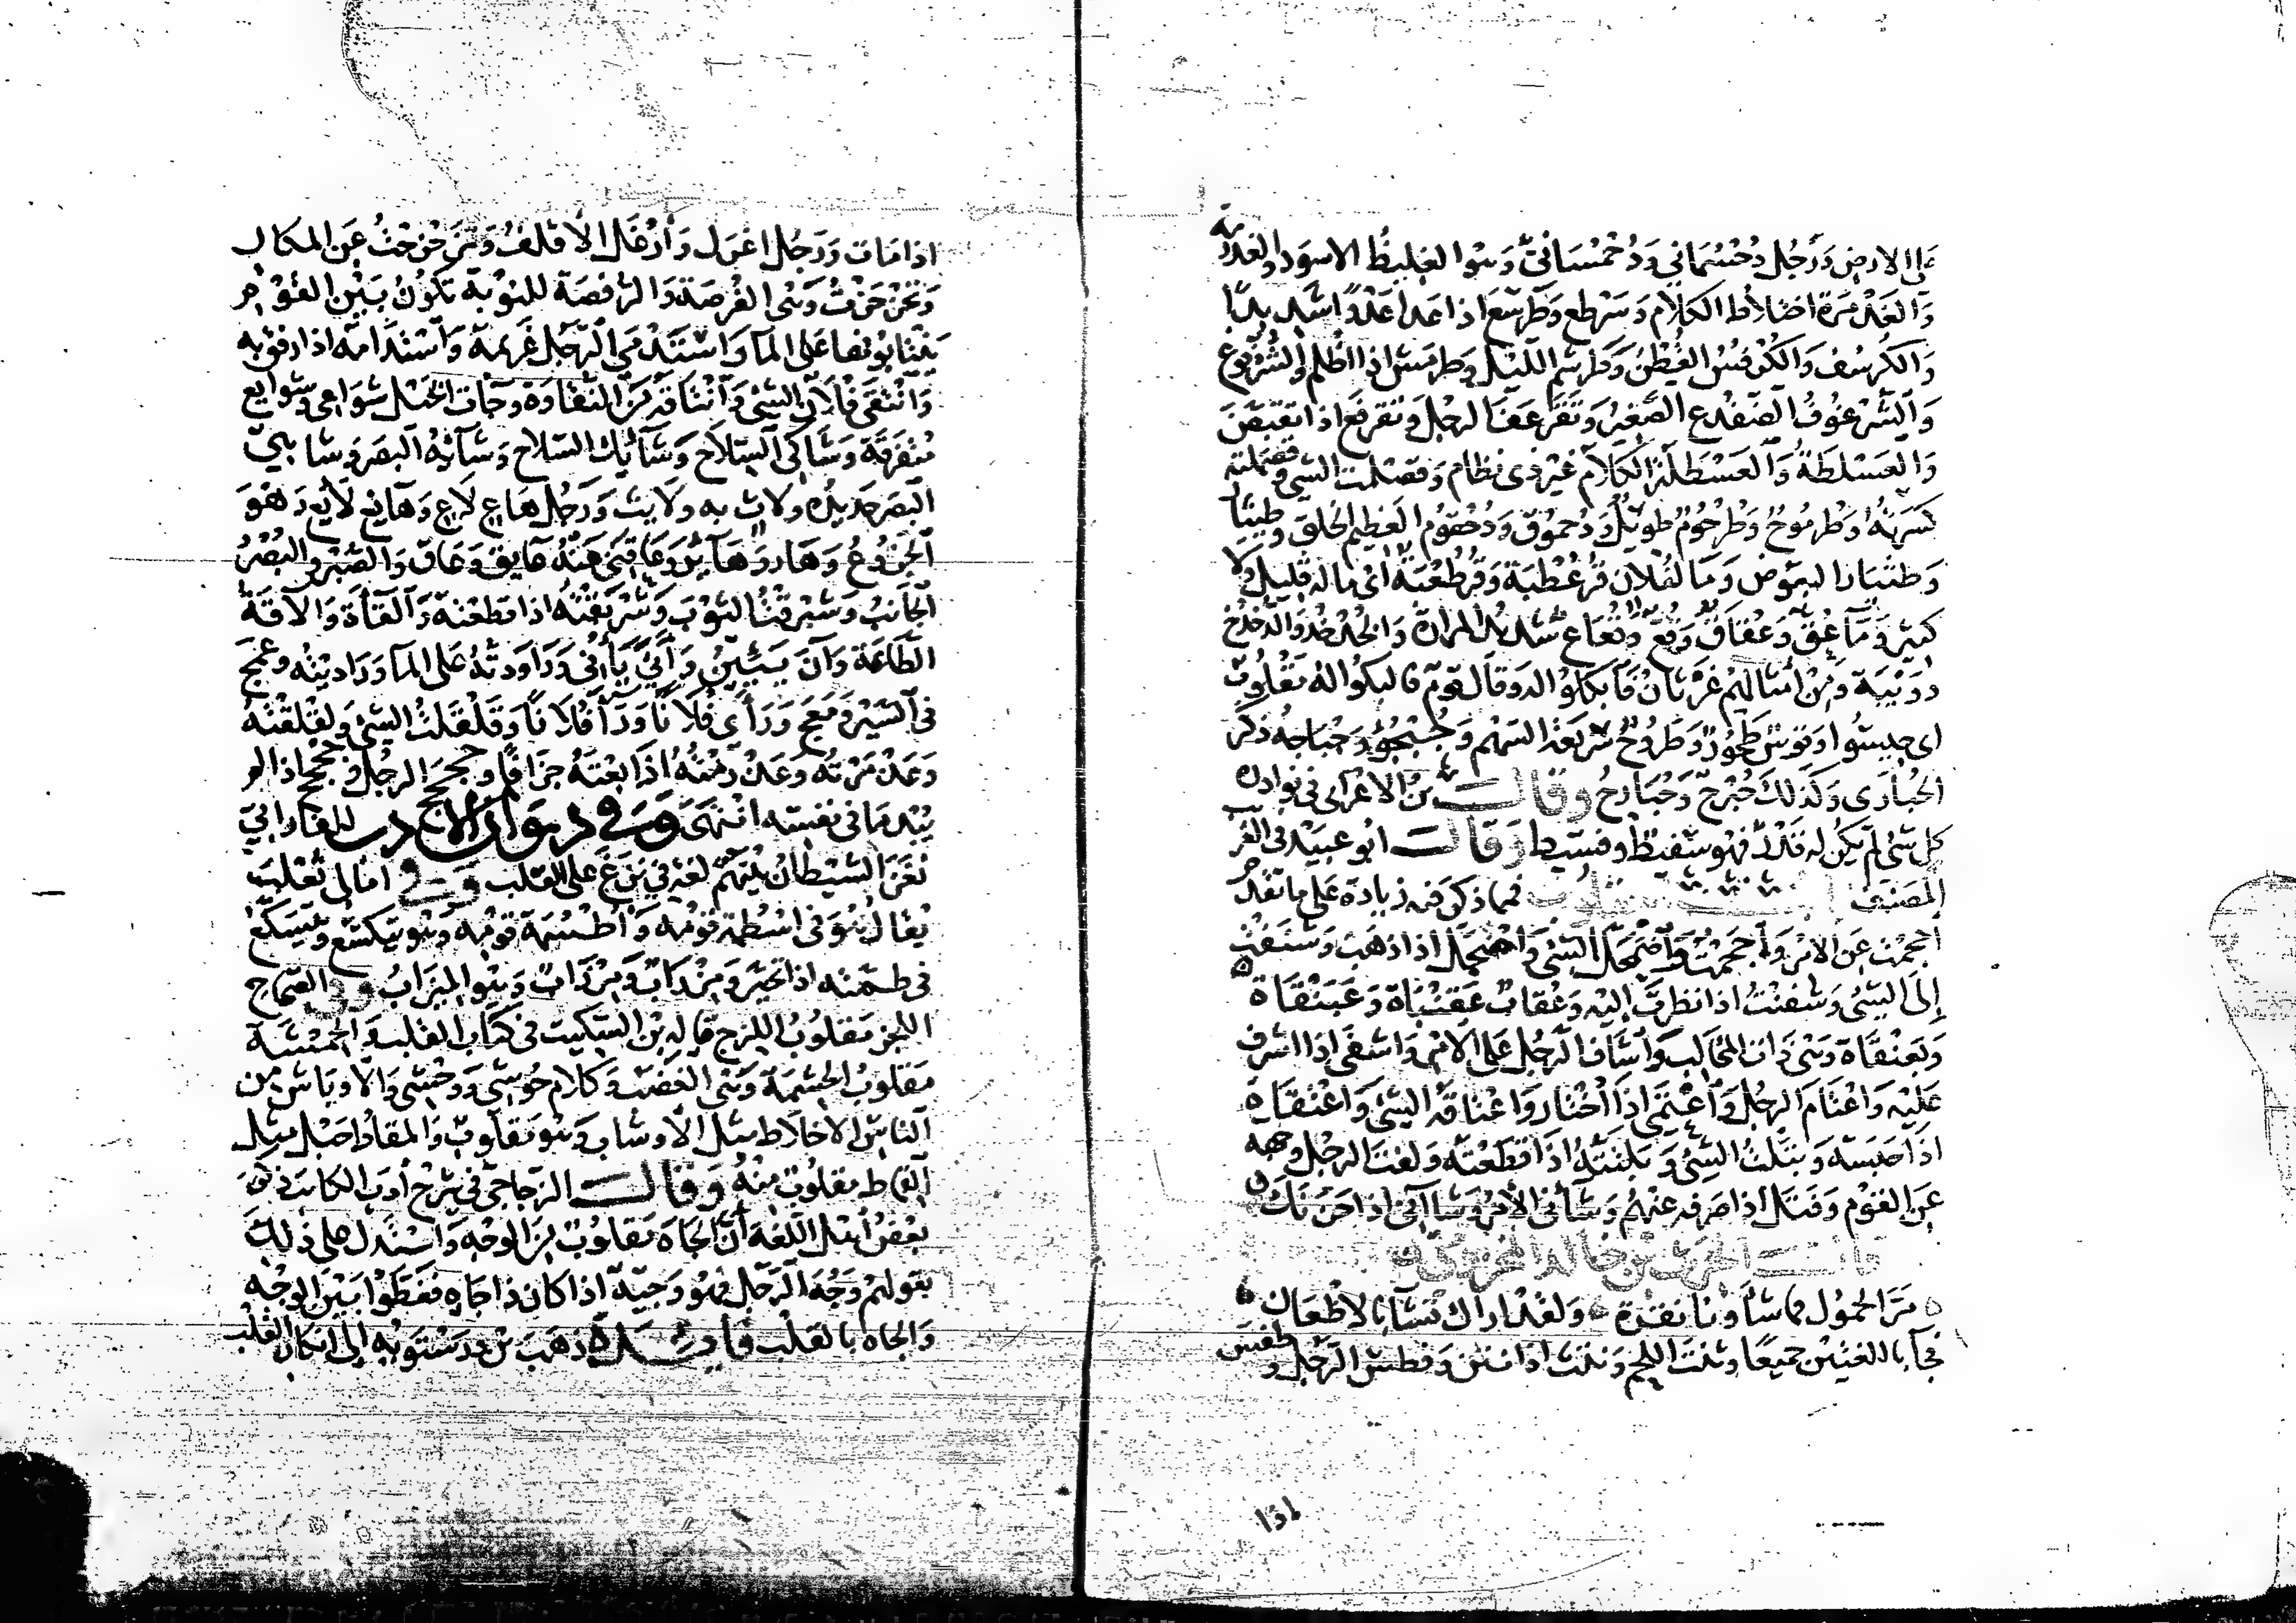 على الارض ورجل دُحْسُماني ودُحْمُساني وهو الغليظ الاسود والغذرمة
والغذمرة اختلاط الكلام وسرطع وطرسع اذا عدا عدوا شديدا
والكرسف والكرفس القطن وطرسم الليل وطرمس اذا اظلم والشرغوف
والشرغوف الضفدع الصغير وتقرعف الرجل وتقرفع اذا تقبض
والعسلطة والعسطلة الكلام غير ذي نظام وقصملت الشي وقصلمته
كسرته وطرموح وطرحوم طويل ودحموق ودحقوم العظيم الخلق
البعوض وما لفلان قرعطبة وقرطعبة اي ما له قليل ولا
كثير وماء عق وعقاق وقع وقعاع شديد المرارة والخدخد والدخدخ
دويبة ومن امثالهم غرثان فابكلوا له وقال قوم فالبكوا له مقلوب
اي حيسوا وقوس طحور وطروح سريعة السهم
الحبارى وكذلك حبرج وحبارج وقال بن الاعرابي في نوادره
كل شي لم يكن له قدر فهو سفيط وفسيط وقال ابو عبيد في الغريب
المصنف فيما ذكر فيه زيادة على ما تقدم
احجمت عن الامر واجحمت واضمحل الشي وامضحل اذا ذهب وشنفت
إلى الشي وشفنت اذا نظرت اليه وعقاب عقنباة وعبنقاة
وبعنقاة وهي ذات المخالب واشاف الرجل على الامر واشفى اذا اشرف
عليه واعتام الرجل واعتمى اذا اختار واعتاقه الشي واعتقاه
اذا حبسه وبتلت الشي وبلته اذا قطعته ولفت الرجل وجهه
عن القوم وفتل اذا صرفه عنهم وشاني الامر وشااني اذا حزنك
قال الحرث بن خالد المخزومي
مر الحمول فما شأونك نقرة ولقد اراك تشاء بالاظعان
فجا باللغتين جميعا وثنت اللحم ونثت اذا انتن وفطس الرجل وطفس
اذا مات ورجل اغرل وأرغل الاقلف وتزحزحت عن المكان
وتحزحزت وهي الفرصة والرفصة للنوبة تكون بين القوم
يتناوبونها على الما واستدمى الرجل غريمه واستدامه اذا رفق به
وانتقى فلان الشي وانتاقه من النقاوة وجات الخيل شواعي وشوايع
متفرقة وشاكي السلاح وشائك السلاح وشائه البصر وشاهي
البصر حديده ولاث به ورجل هاع لاع وهايع لايع وهو
الجزوع وهار وهائر وعاقني عنه عايق وعاق والصبر والبصر
الجانب وشبرقت الثوب وشربقته اذا قطعته والقأة والاقة
الطاعة وآن يئين وأنى يأني وراودته على الما وراديته وعمج
في السير ومعج ورأى فلانا وراء فلانا وقلقلت الشي ولقلقته
وغذمرته وغذرمته اذا بعته جزافا وحجحج الرجل وجحجح اذا لم
يبد ما في نفسه انتهى وفي ديوان الادب للفارابي
نغز الشيطان بينهم لغة في نزغ على القلب وفي امالي ثعلب
يقال هو في اسطمة قومه واطسمة قومه وهو يتكسع ويتسكع
في طمته اذا تحير ومزراب ومرزاب وهو الميزاب وفي الصحاح
اللجز مقلوب اللزج قاله بن السكيت في كتاب القلب والحمشة
مقلوب الحشمة وهي الغضب وكلام حوشي ووحشي والاوباش من
الناس الاخلاط مثل الاوشاب وهو مقلوب والمقاط حبل مثل
القماط مقلوب منه وقال الزجاجي في شرح أدب الكاتب ذكر
بعض اهل اللغة ان الجاه مقلوب من الوجه واستدل على ذلك
بقولهم وجه الرجل فهو وجيه اذا كان ذا جاه ففصلوا بين الوجه
والجاه بالقلب فائدة ذهب بن درستويه إلى انكار القلب